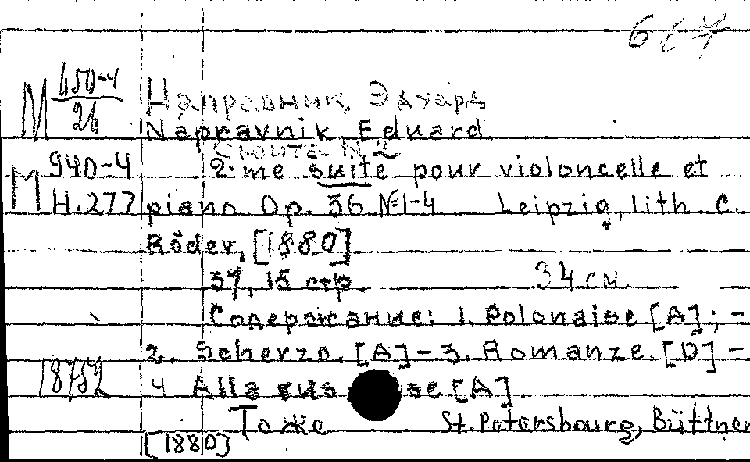 М 450-4
26
Направник, Эдуард
Napravnik, Eduard
Сюита N 2
М 940-4 2-me suite pour violoncelle et
Н.277 piano Op. 36 №1-4 Leipzig, lith. C.
Röder, [1880]
37, 15 стр. 34 см.
Содержание: 1. Polonaise [A]; -
2. Scherzo. [A] - 3. Romanze. [D] -
18752 4 Alla rus se. [A].
Тоже St. Petersbourg, Büttner
[1880]